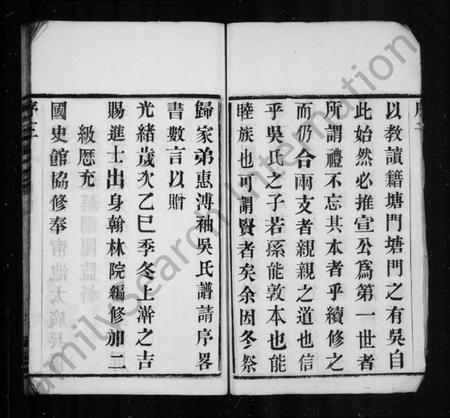 以教讀籍塘門塘門之有吳自
此始然必推宣公爲第一世者
所謂禮不忘其本者乎續修之
而仍合兩支者親親之道也信
乎吳氏之子若孫能敦本也能
睦族也可謂賢者矣余因冬祭
歸家弟惠溥秞吳氏譜請序畧
書數言以贈
光緒歲次乙巳季冬上澣之吉
賜進士出身翰林院編修加二
級歷充
國史館協修奉
序三
FamilySearch International